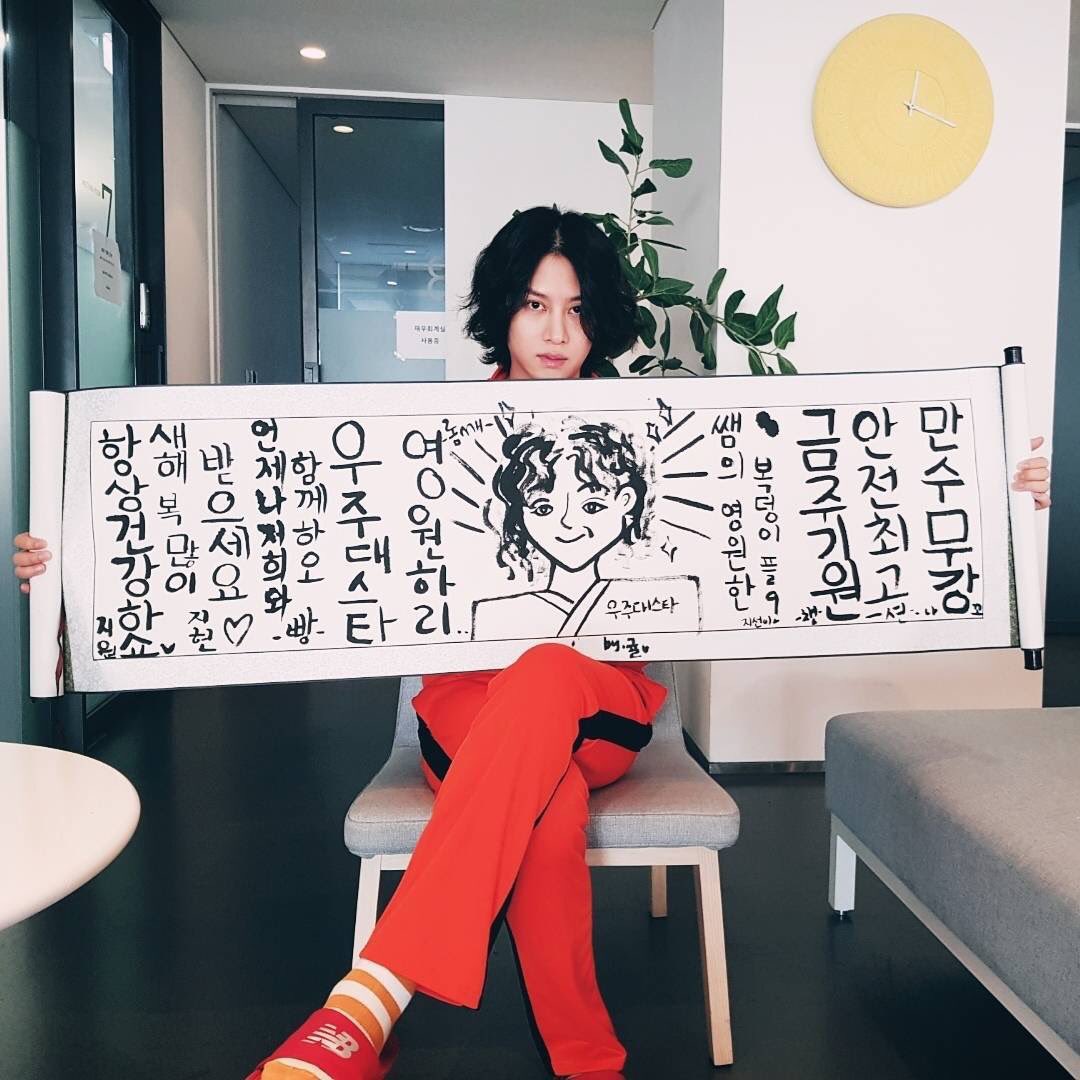 항상건강하쇼♥
지원
새해 복 많이
받으세요
지현♡
언제나저희와
함께하오
-빵-
우주대스타
영원하리..
우주대스타
by.귤♥
쌤의 영원한
복덩이 플9
지선이
금주기원
안전최고
-선-
만수무강
사용중
7